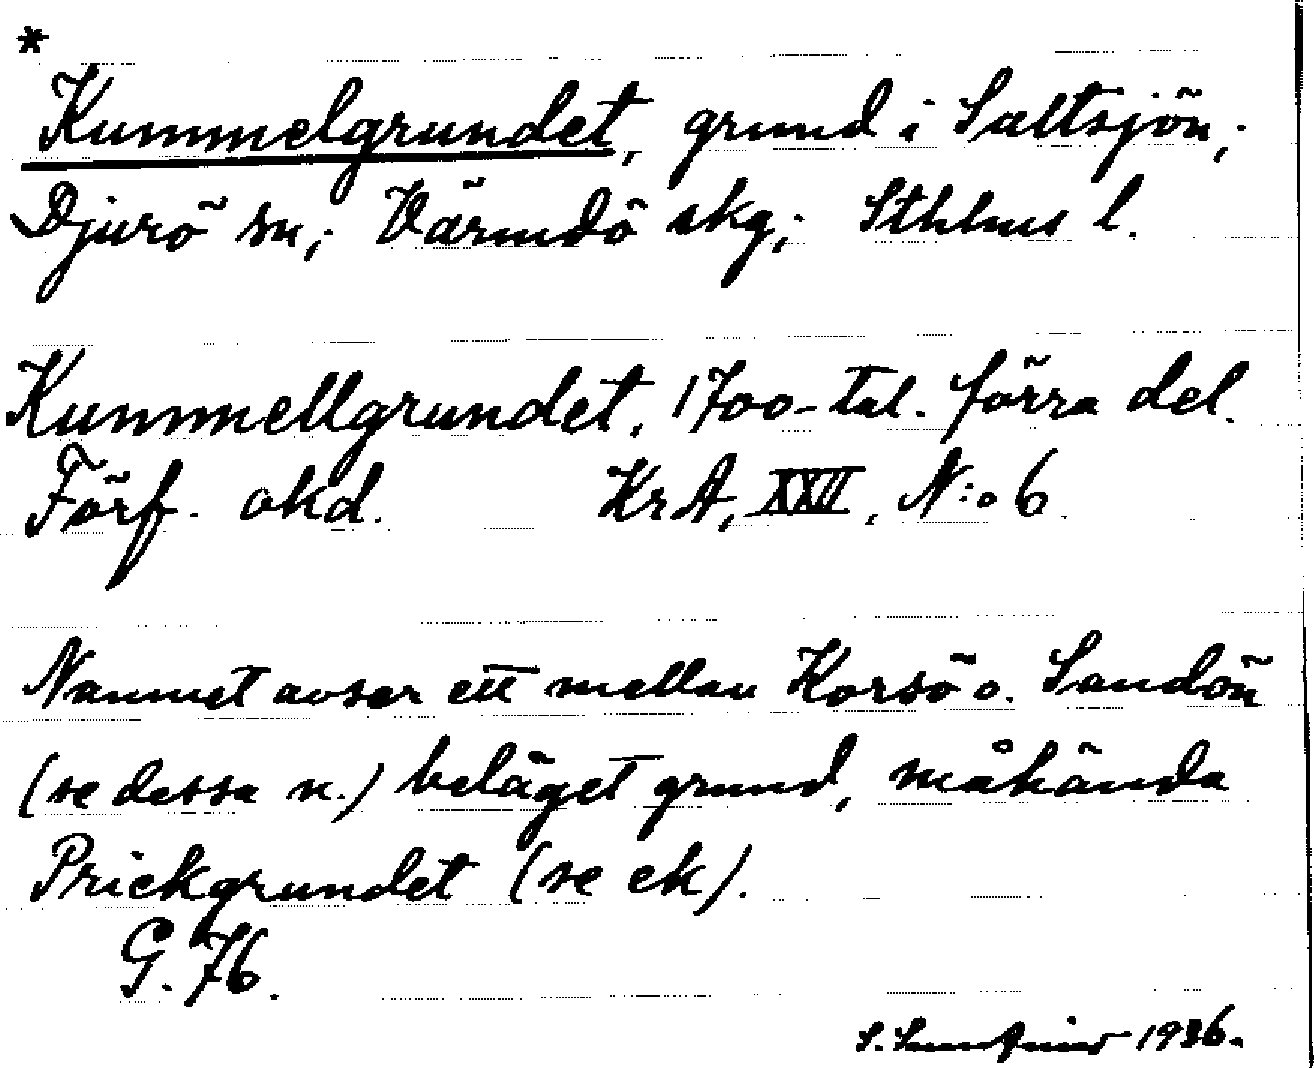 *
Kummelgrundet, grund i Saltsjön;
Djurö sn; Värmdö skg; Sthlms l.
Kummellgrundet, 1700-tal. förra del.
Förf. okd. KrA, XXII, N:o 6
Namnet avser ett mellan Korsö o. Sandön
(se dessa n.) beläget grund, måhända
Prickgrundet (se ek).
G. 76.
S. 1936.